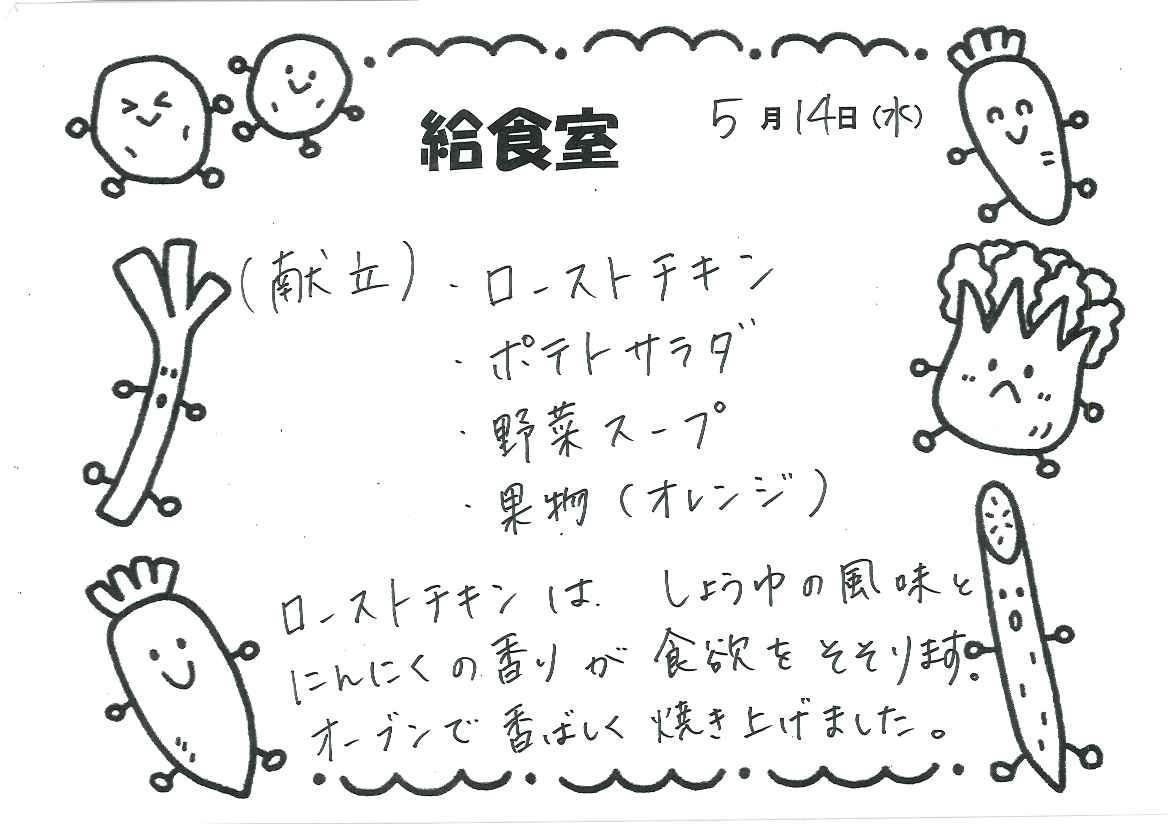 給食室
5月14日(水)
(献立)・ローストチキン
・ポテトサラダ
・野菜スープ
・果物(オレンジ)
ローストチキンは、しょうゆの風味と
にんにくの香りが食欲をそそります。
オーブンで香ばしく焼き上げました。